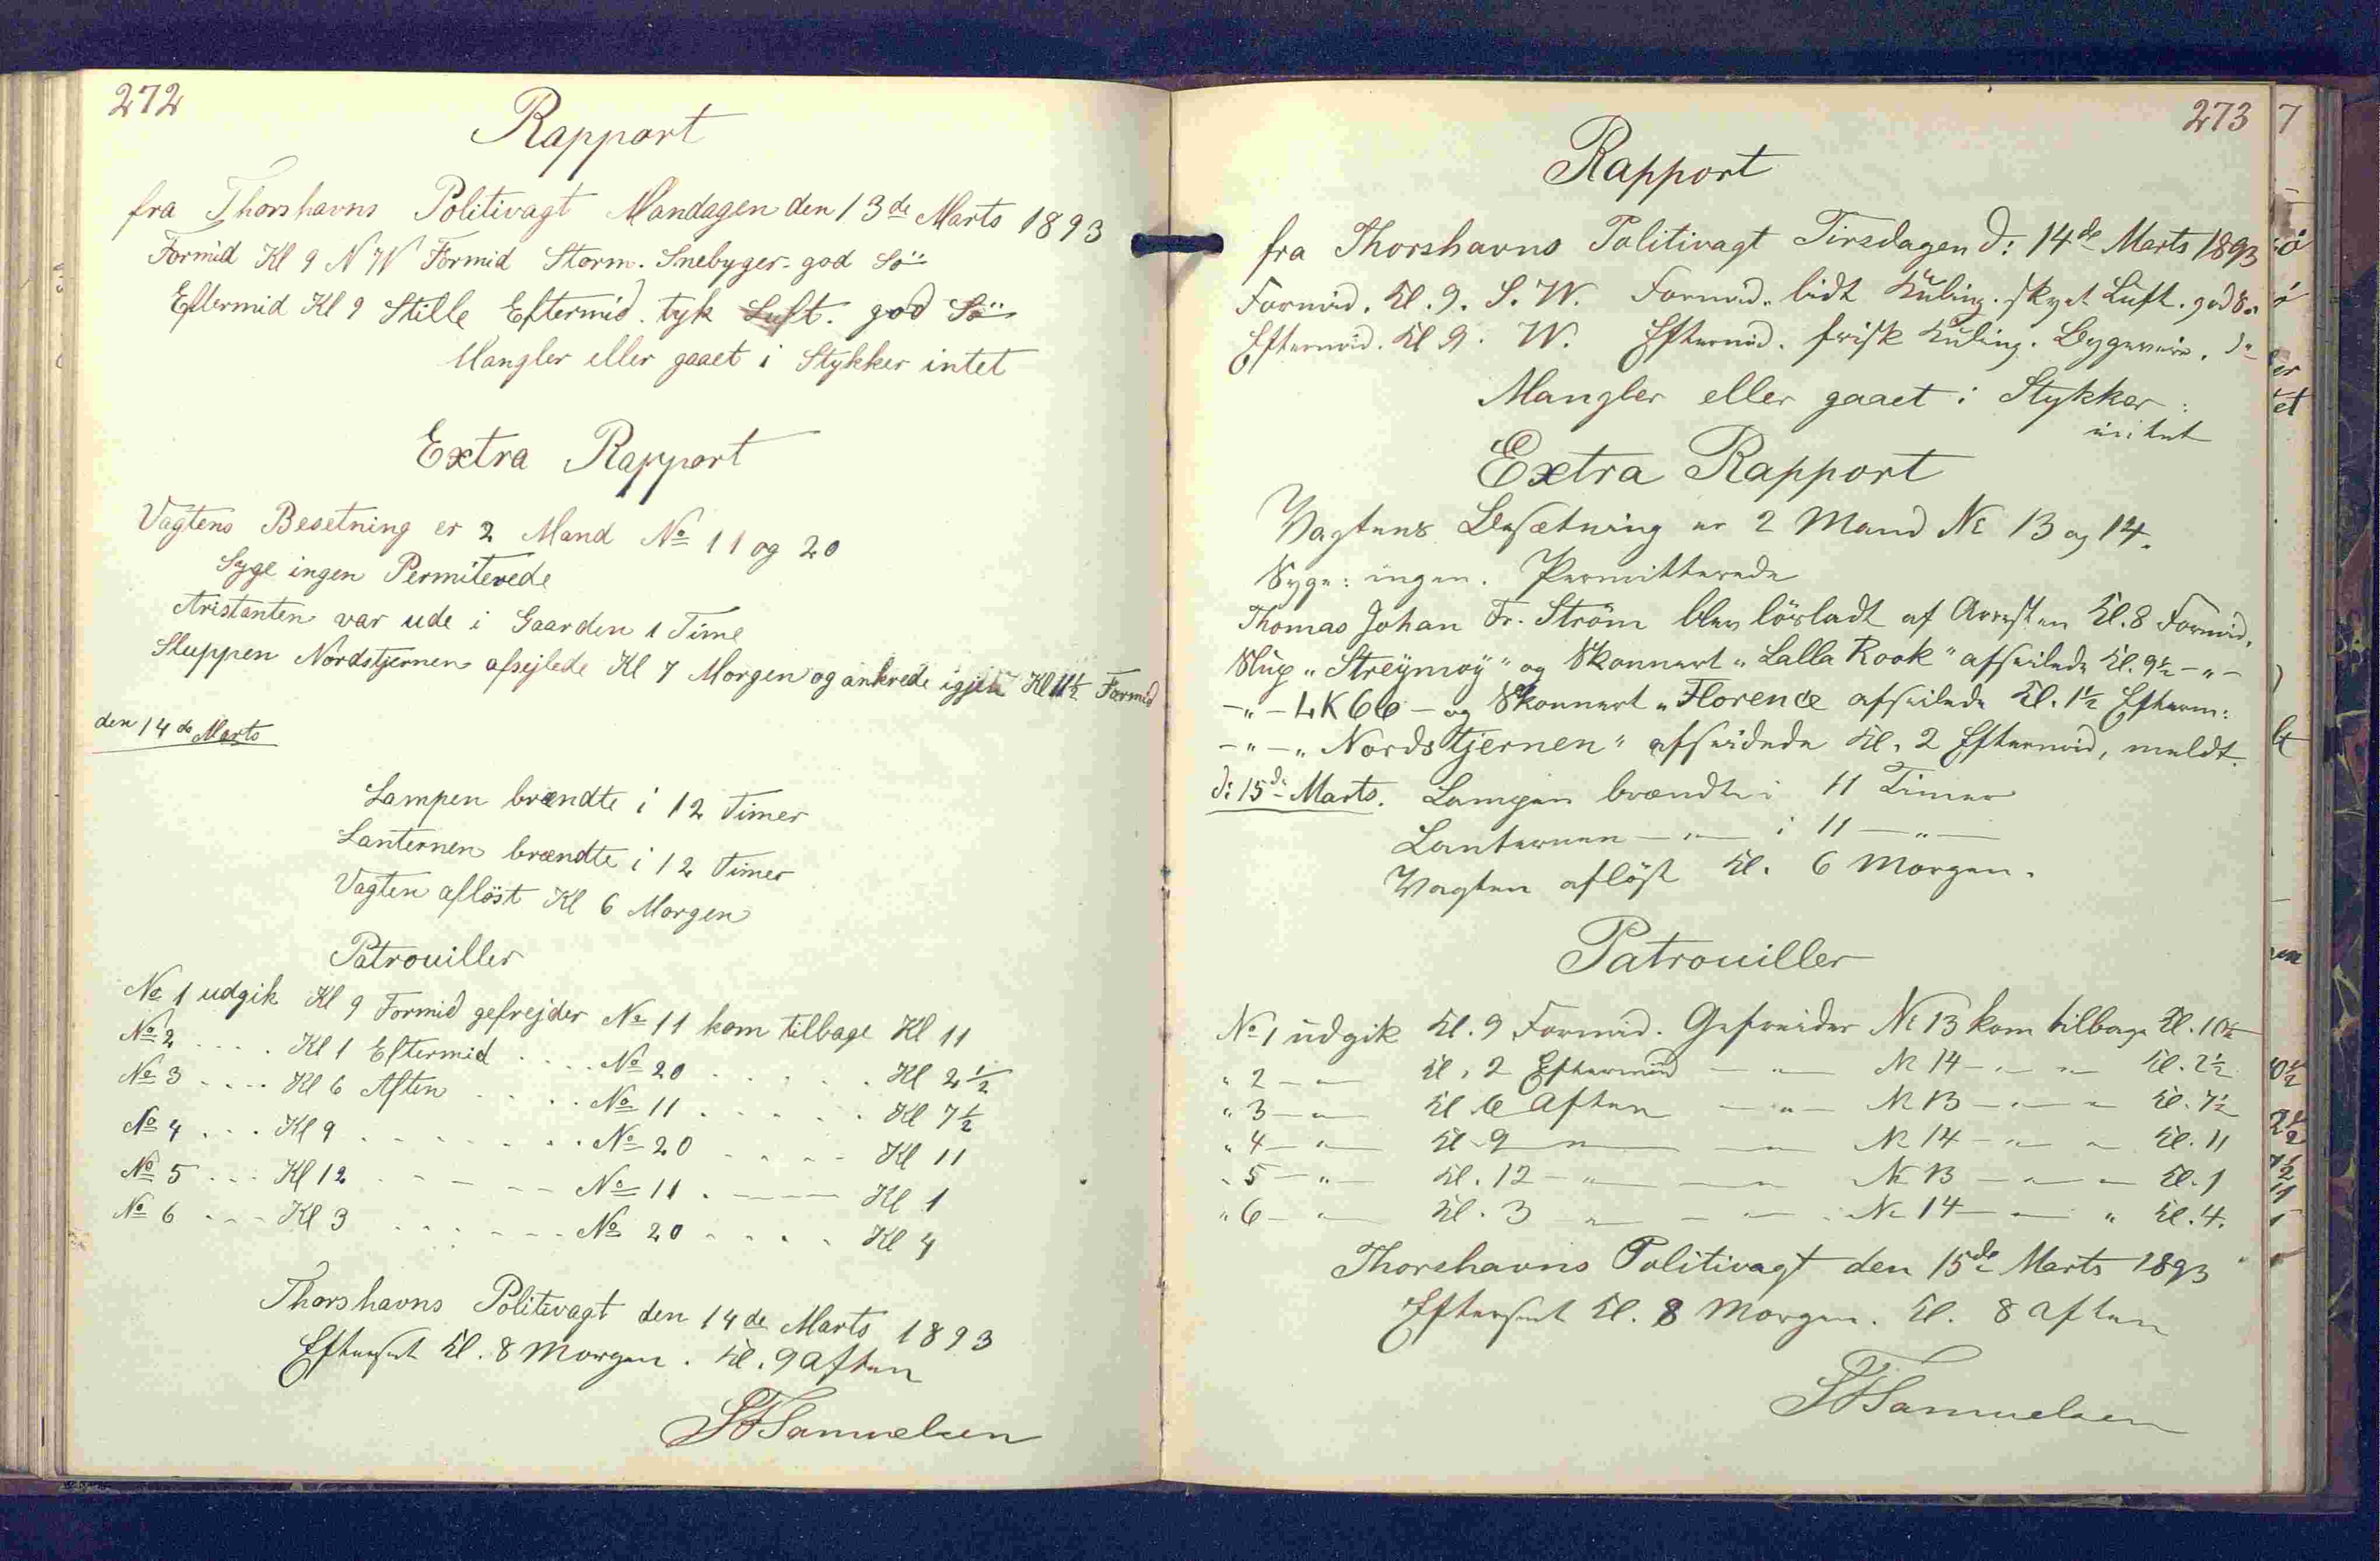 272
Rapport
fra Thorshavns Politivagt Mandagen den 13de Marts 1893
Formid Kl 9 N W Formid Storm. Snebyger. god Sö
Eftermid Kl 9 Stille Eftermid. tyk Luft. god Sö
Mangler eller gaaet i Stykker intet
Extra Rapport
Vagtens Besetning er 2 Mand No 11 og 20
Syge ingen Permiterede
Aristanten var ude i Gaarden 1 Time
Sluppen Nordstjernen afsejlede Kl 7 Morgen og ankrede igjen Kl 11½ Formid
den 14de Marts
Lampen brændte i 12 Timer
Lanternen brændte i 12 Timer
Vagten aflöst Kl 6 Morgen
Patrouiller
No 1 udgik Kl 9 Formid gefrejder No 11 kom tilbage Kl 11
No 2 .... Kl 1 Eftermid .... No 20 ...... Kl 2½
No 3 .... Kl 6 Aften ..... No 11 ...... Kl 7½
No 4 ... Kl 9 ....... No 20 ..... Kl 11
No 5 ... Kl 12 ------ No 11 .---- Kl 1
No 6 ... Kl 3 ------ No 20 ..... Kl 4
Thorshavns Politivagt den 14de Marts 1893
Efterset Kl. 8 Morgen. Kl. 9 Aften
Samuelsen
273
Rapport
fra Thorshavns Politivagt Tirsdagen d: 14de Marts 1893
Formid. Kl. 9. S. W. Formid. lidt Kuling. skyet Luft. god Sö
Eftermid. Kl 9. W. Eftermid. frisk Kuling. Bygeveir. do
Mangler eller gaaet i Stykker:
intet
Extra Rapport
Vagtens Besætning er 2 Mand No 13 og 14.
Syge: ingen. Permitterede
Thomas Johan Fr. Ström blev lösladt af Arresten Kl. 8 Formid.
Slup "Streymoy" og Skonnert "Lalla Rook" afseilede Kl. 9½ - " -
- " - LK 66 - og Skonnert "Florence afseilede Kl. 1½ Efterm:
- " - "Nordstjernen" afseilede Kl. 2 Eftermid, meldt.
d: 15de Marts. Lampen brændte i 11 Timer
Lanternen — " — i 11 — " —
Vagten aflöst Kl. 6 Morgen.
Patrouiller
No 1 udgik Kl. 9 Formid. Gefreider No 13 kom tilbage Kl. 10½
" 2 — " — Kl. 2 Eftermid — " — No 14 — " — " — Kl. 2½
" 3 — " — Kl 6 Aften — " — No 13 — " — " — Kl. 7½
" 4 — " — Kl 9 — " — — " — No 14 — " — " — Kl. 11
" 5 — " — Kl. 12 — " — — " — No 13 — " — " — Kl. 1
" 6 — " — Kl. 3 — " — — " — No 14 — " — " Kl. 4.
Thorshavns Politivagt den 15de Marts 1893
Efterset Kl. 8 Morgen. Kl. 8 Aften
Samuelsen